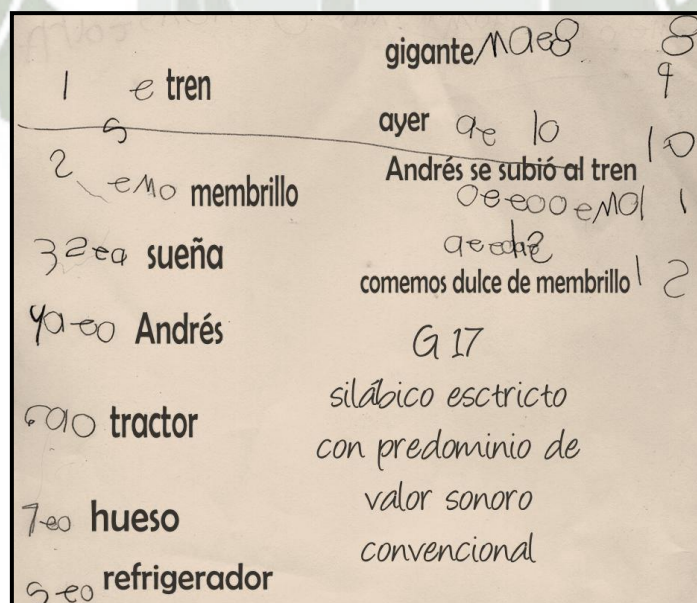 1 e tren
5
2 emo membrillo
3 2ea sueña
4 a-eo Andrés
6 a10 tractor
7 eo hueso
5 eo refrigerador
gigante mae8 8
9
ayer ae 10 10
Andrés se subió al tren
oeeooemo1 1
ae
comemos dulce de membrillo 12
G 17
silábico esctricto
con predominio de
valor sonoro
convencional